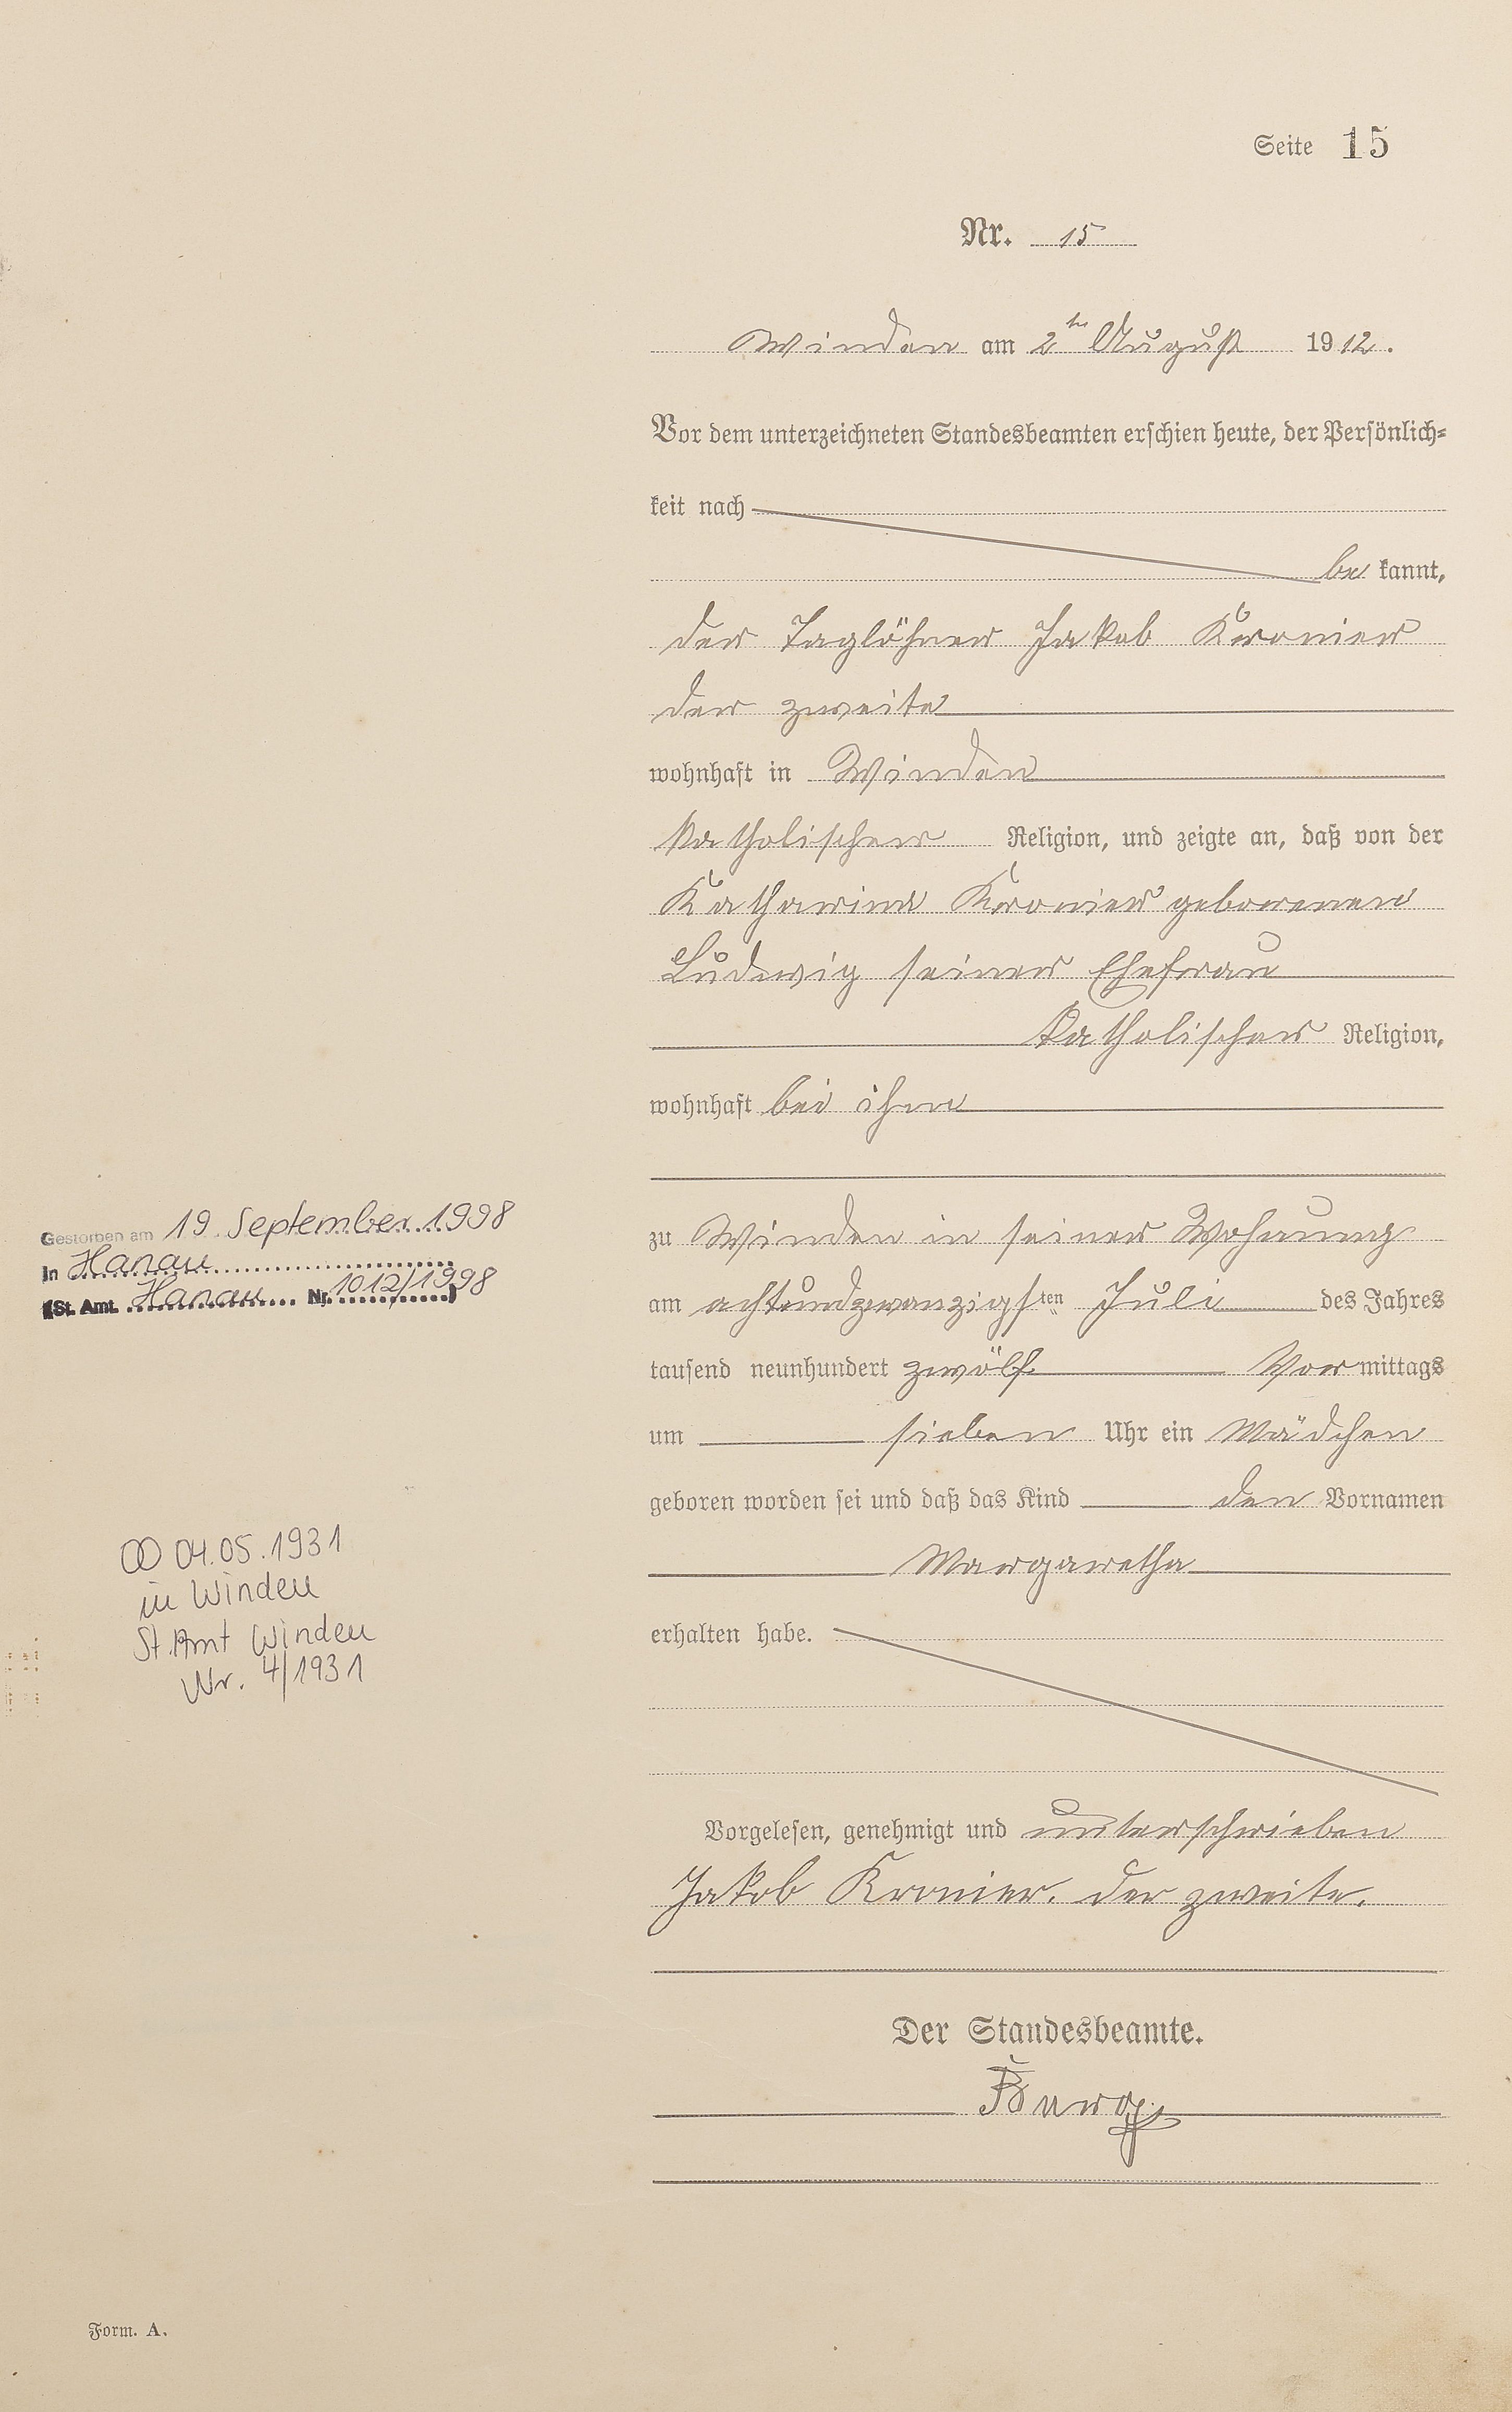 Seite 15
Nr. 15
Winden am 2ten August 1912.
Vor dem unterzeichneten Standesbeamten erschien heute, der Persönlich=
keit nach
be kannt,
der Taglöhner Jakob Kronier
der zweite
wohnhaft in Winden
katholischer Religion, und zeigte an, daß von der
Katharina Kronier geborenen
Ludwig seiner Ehefrau
katholischer Religion,
wohnhaft bei ihm
zu Winden in seiner Wohnung
am achtundzwanzigsten Juli des Jahres
tausend neunhundert zwölf Vor mittags
um sieben Uhr ein Mädchen
geboren worden sei und daß das Kind den Vornamen
Margaretha
erhalten habe.
Vorgelesen, genehmigt und unterschrieben
Jakob Kronier. der zweite.
Der Standesbeamte.
Burg
Gestorben am 19. September 1998
In Hanau
(St. Amt. Hanau Nr. 1012/1998)
∞ 04.05.1931
in Winden
St. Amt Winden
Nr. 4/1931
Form. A.